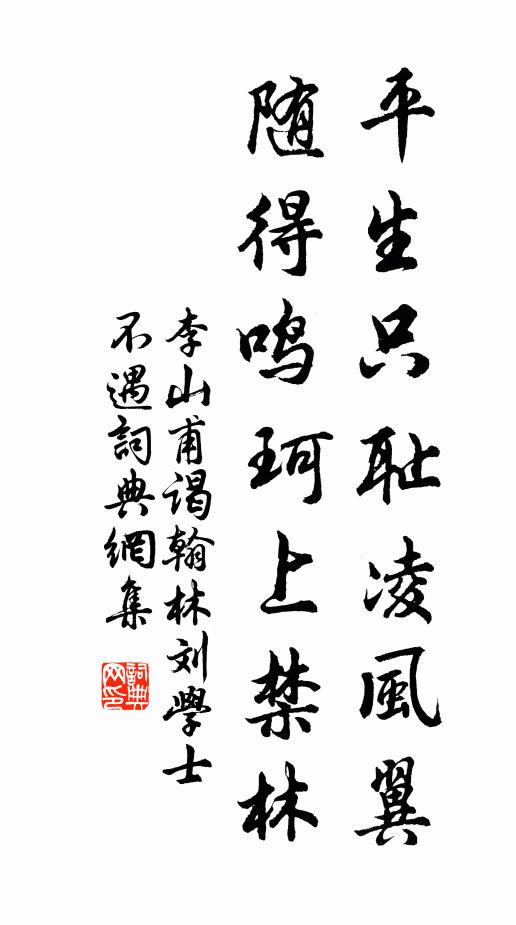 平生只耻凌風翼
随得鸣珂上禁林
李山甫谒翰林刘學士
不遇詞典網集
詞典
网印